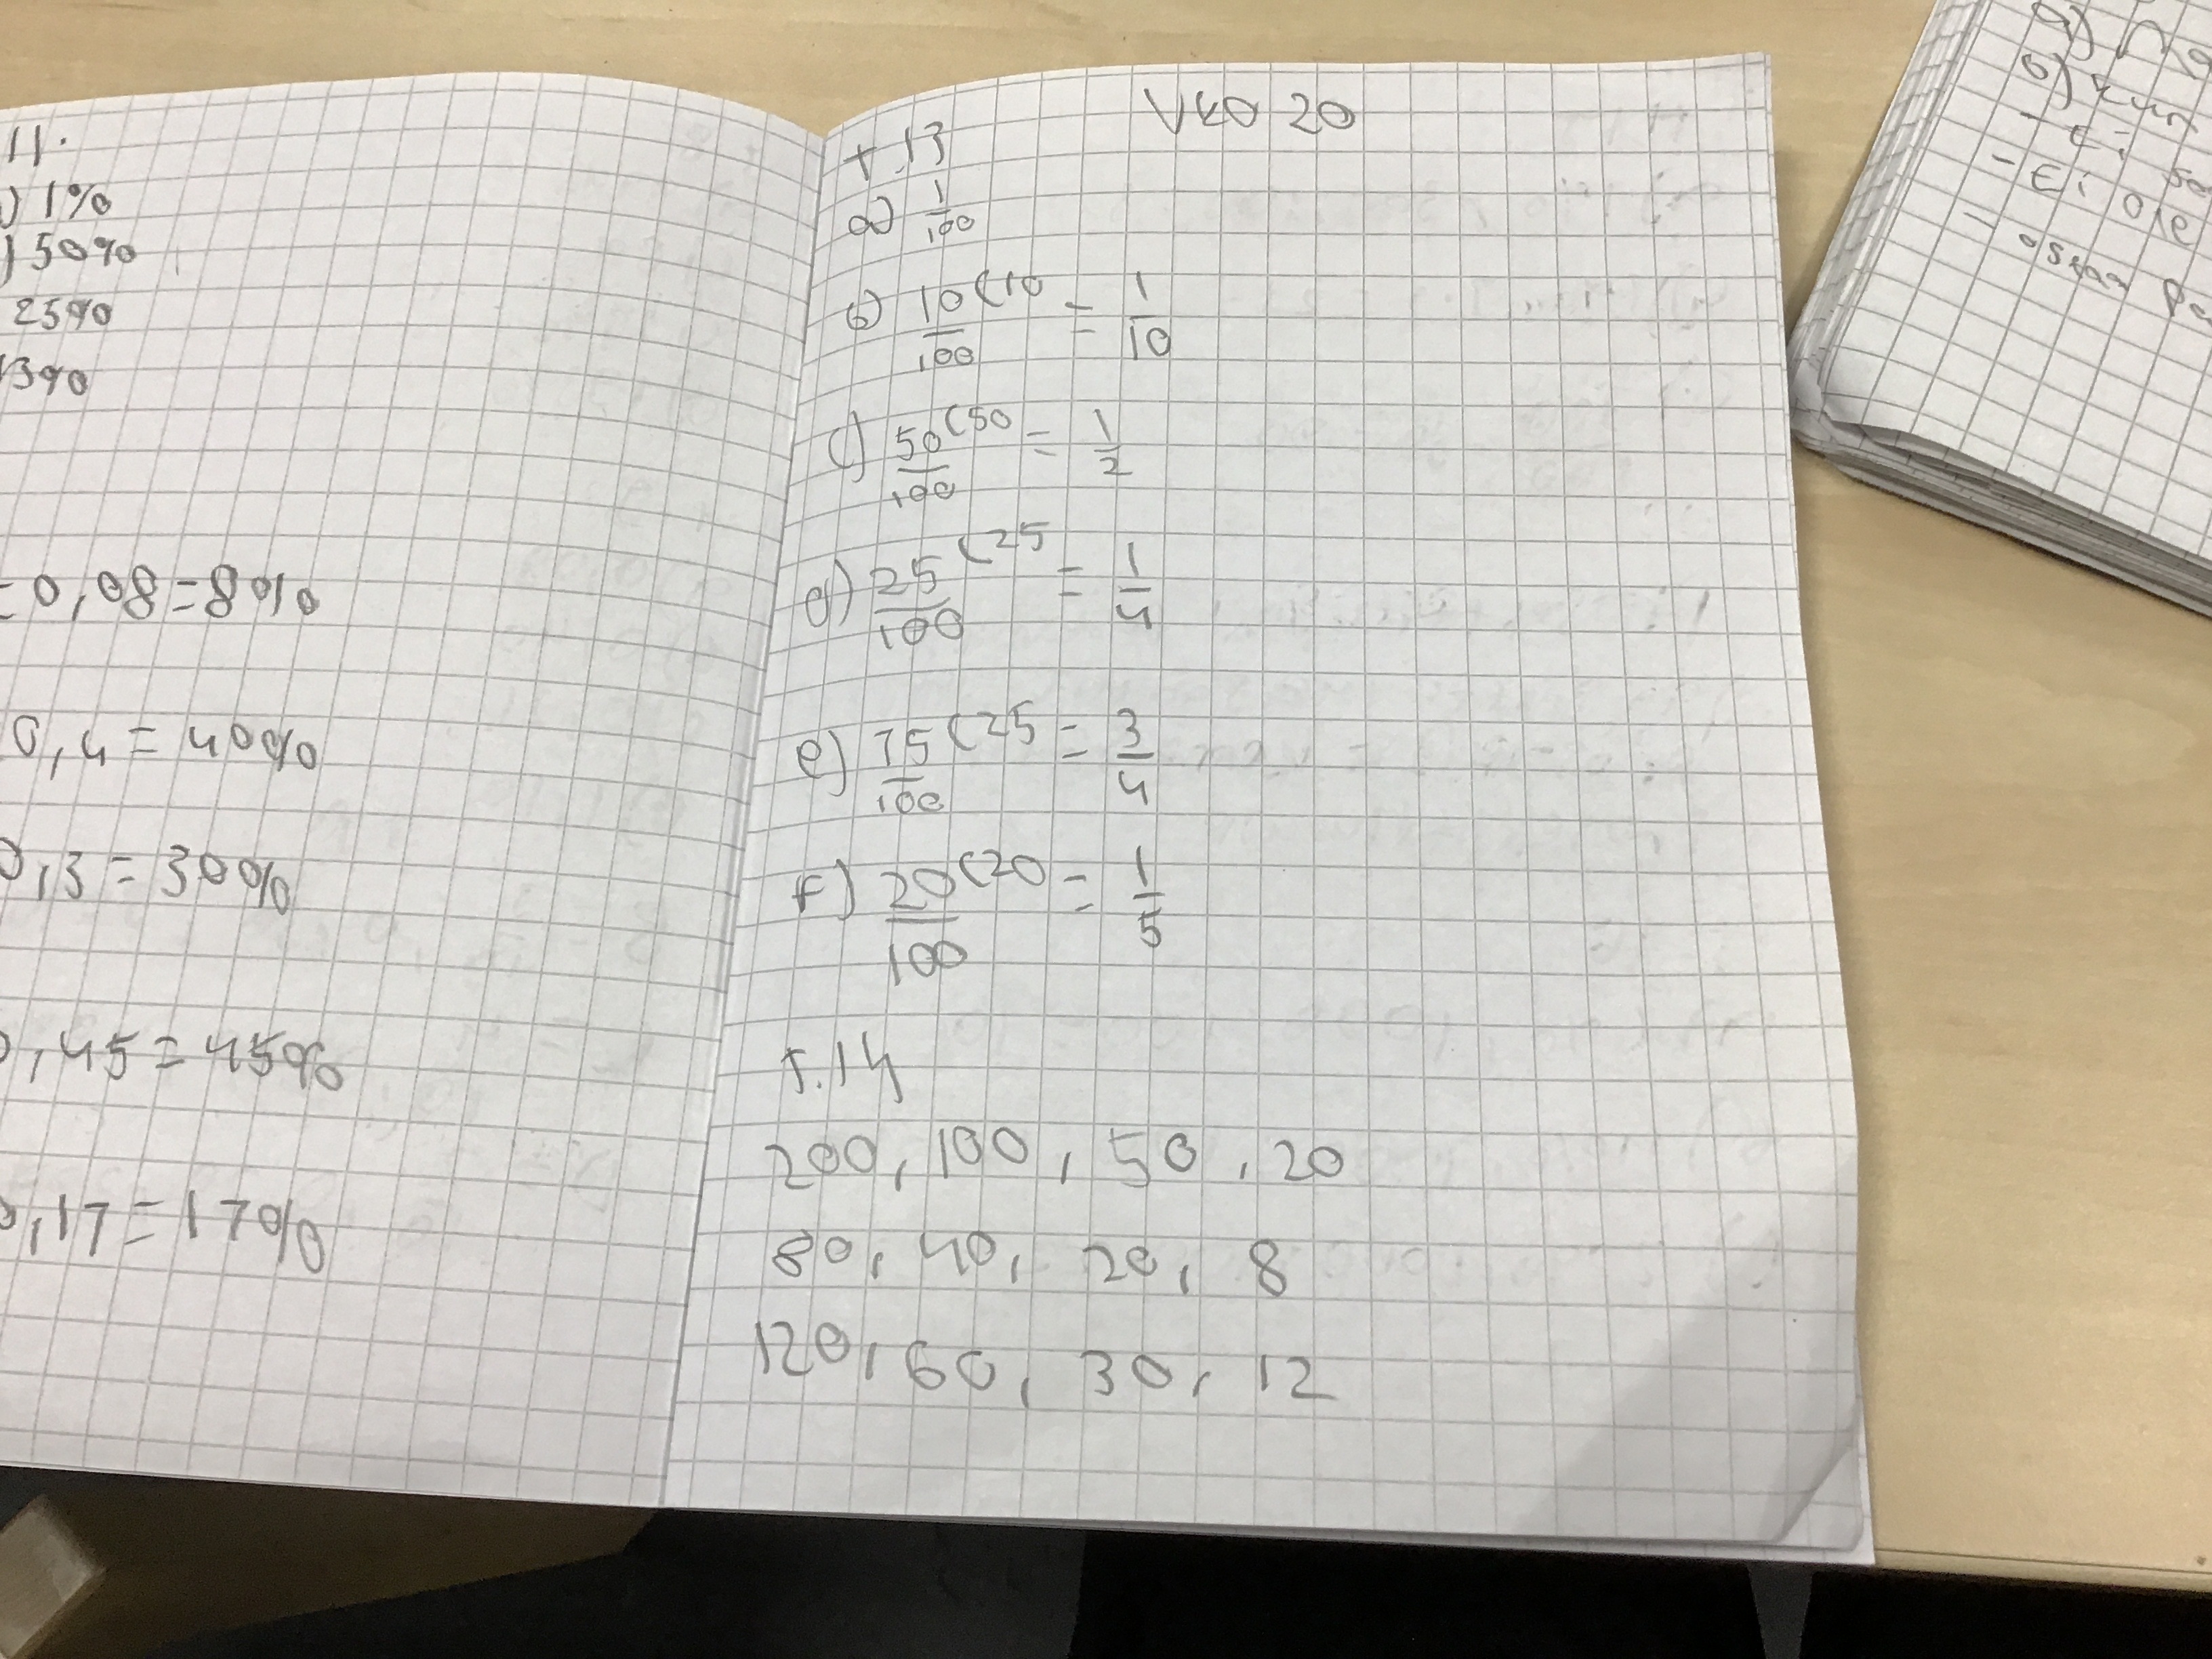 11.
) 1%
) 50%
25%
13%
= 0,08 = 8%
0,4 = 40%
0,3 = 30%
0,45 = 45%
0,17 = 17%
Vko 20
t.13
a) 1/100
b) 10/100 (10 = 1/10
c) 50/100 (50 = 1/2
d) 25/100 (25 = 1/4
e) 75/100 (25 = 3/4
f) 20/100 (20 = 1/5
t.14
200, 100, 50, 20
80, 40, 20, 8
120, 60, 30, 12
- Ei
- Ei ole
- ostaa